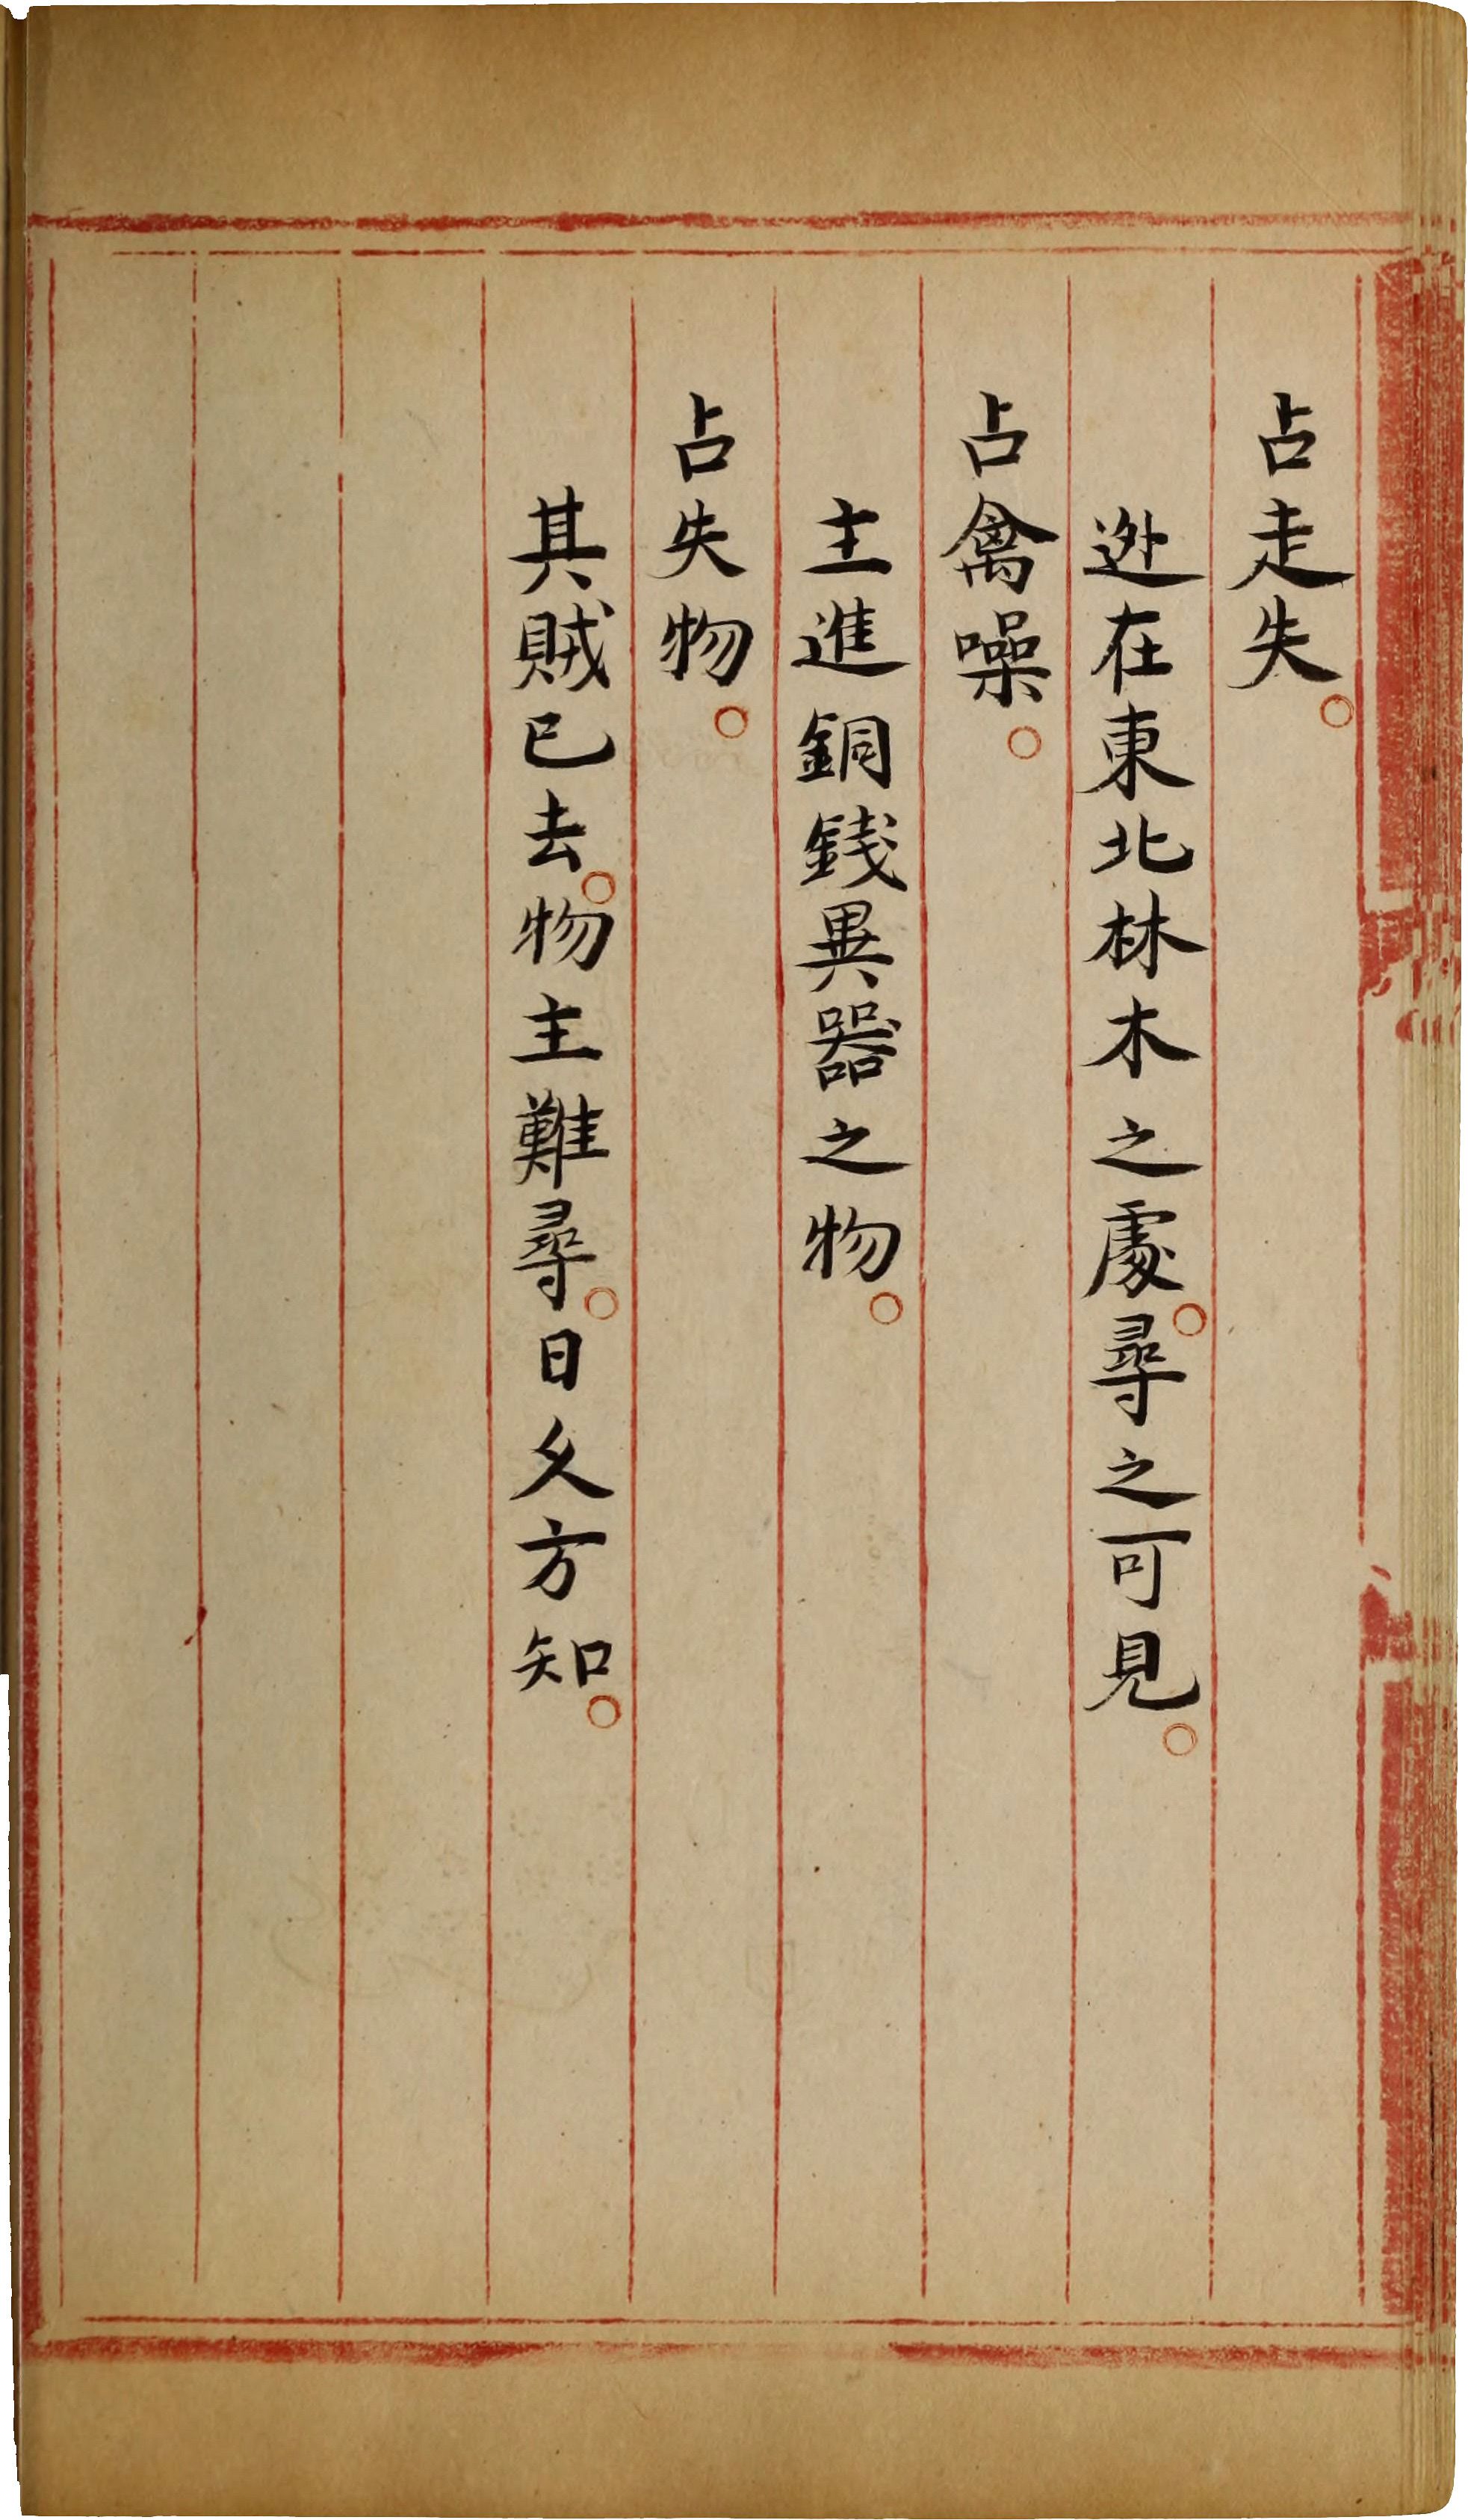 占走失。
迯在東北林木之處。尋之可見。
占禽噪。
主進銅錢異器之物。
占失物。
其賊已去。物主難尋。日久方知。